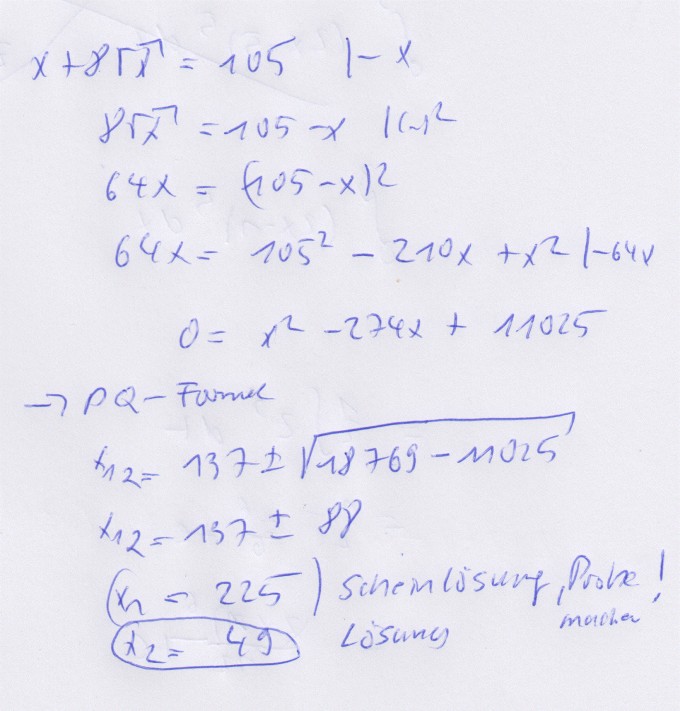 x + 8√x = 105 |- x
8√x = 105 - x |(..)²
64x = (105 - x)²
64x = 105² - 210x + x² |-64x
0 = x² - 274x + 11025
→ PQ-Formel
x₁₂ = 137 ± √18769 - 11025
x₁₂ = 137 ± 88
(x₁ = 225) Scheinlösung, Probe machen!
x₂ = 49 Lösung